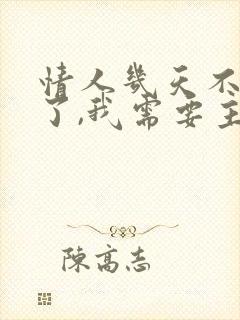 情人几天不
了,我需要主
陳高志